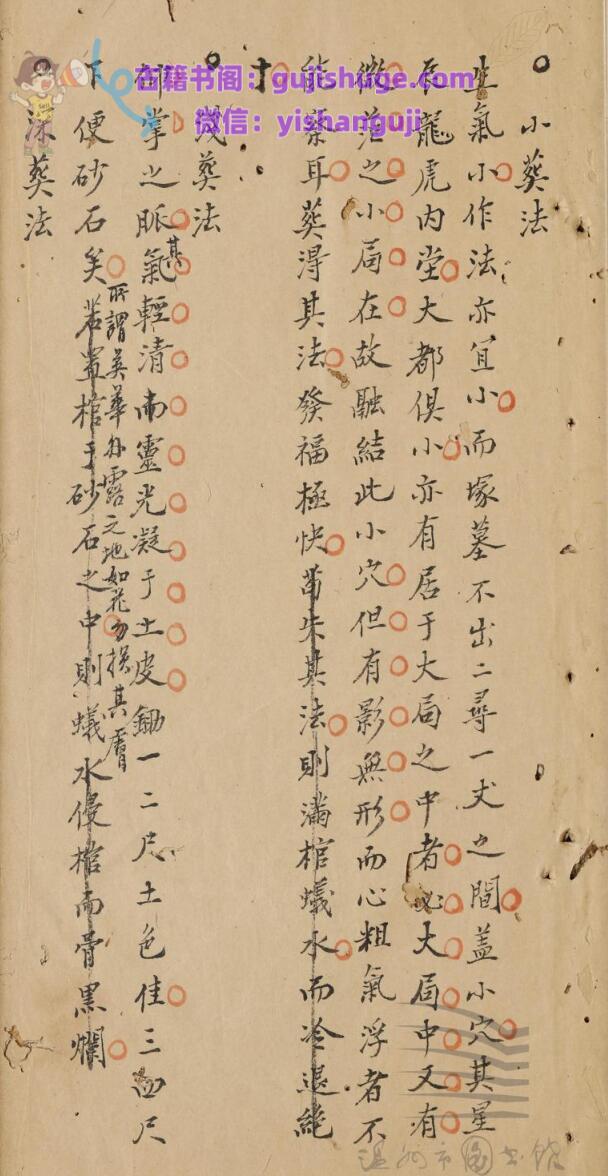 小葬法
生氣小作法亦宜小而塚墓不出二尋一丈之間盖小穴其星
辰龍虎内堂大都俱小亦有居于大局之中者必大局中又有
微茫之小局在故融結此小穴但有影無形而心粗氣浮者不
能察耳葬得其法發福極快苟失其法則滿棺蟻水而冷退絶
才
淺葬法
掌之脈其氣輕清而靈光凝于土皮鋤一二尺土色佳三四尺
下便砂石矣若置棺于砂石之中則蟻水侵棺而骨黑爛
所謂英華外露之地如花勿損其膚
深葬法
古籍书阁：gujishuge.com
微信：yishanguji
温州市圖書館